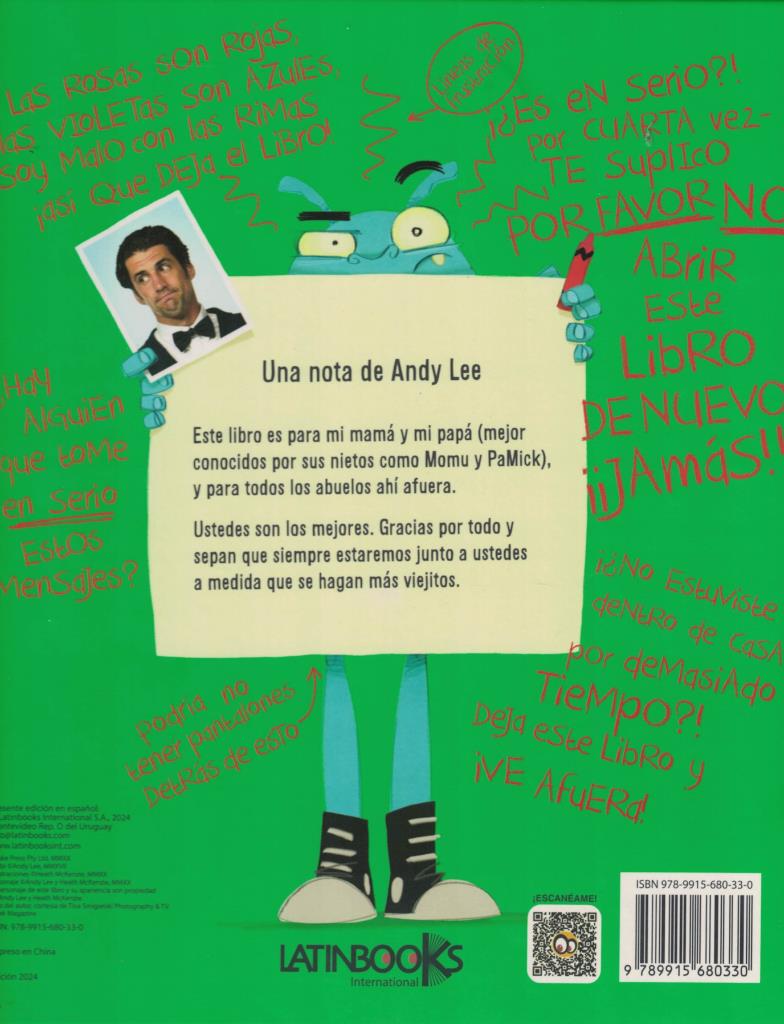 LAS ROSAS SON ROJAS,
las VIOLETAS SON AZULES,
SOY MALO con las RIMAS
¡así QUE DEJA el LIBRO!
Líneas de
frustración
¡¿ES EN SERIO?!
por CUARTA vez-
TE SUPLICO
POR FAVOR NO
ABRIR
ESTE
LIBRO
DE NUEVO
¡¡JAMÁS!!
Una nota de Andy Lee
Este libro es para mi mamá y mi papá (mejor
conocidos por sus nietos como Momu y PaMick),
y para todos los abuelos ahí afuera.
Ustedes son los mejores. Gracias por todo y
sepan que siempre estaremos junto a ustedes
a medida que se hagan más viejitos.
¿HAY
ALGUIEN
que tome
en SERIO
ESTOS
MENSAJES?
¡¿NO ESTUVISTE
DENTRO DE CASA
por DEMASIADO
TIEMPO?!
DEJA ESTE LIBRO y
¡VE AFUERA!
podría no
tener pantalones
DETRÁS de ESTO
esente edición en español:
Latinbooks International S.A., 2024
ontevideo Rep. O del Uruguay
o@latinbooks.com
ww.latinbooksint.com
ke Press Pty Ltd, MMXX
to ©Andy Lee, MMXVII
straciones ©Heath McKenzie, MMXX
rsonaje ©Andy Lee y Heath McKenzie, MMXX
personaje de este libro y su apariencia son propiedad
Andy Lee y Heath McKenzie.
o del autor, cortesía de Tina Smigielski Photography & TV
ek Magazine
N: 978-9915-680-33-0
preso en China
ción 2024
LATINBOOKS
International
¡ESCANÉAME!
ISBN 978-9915-680-33-0
9 789915 680330